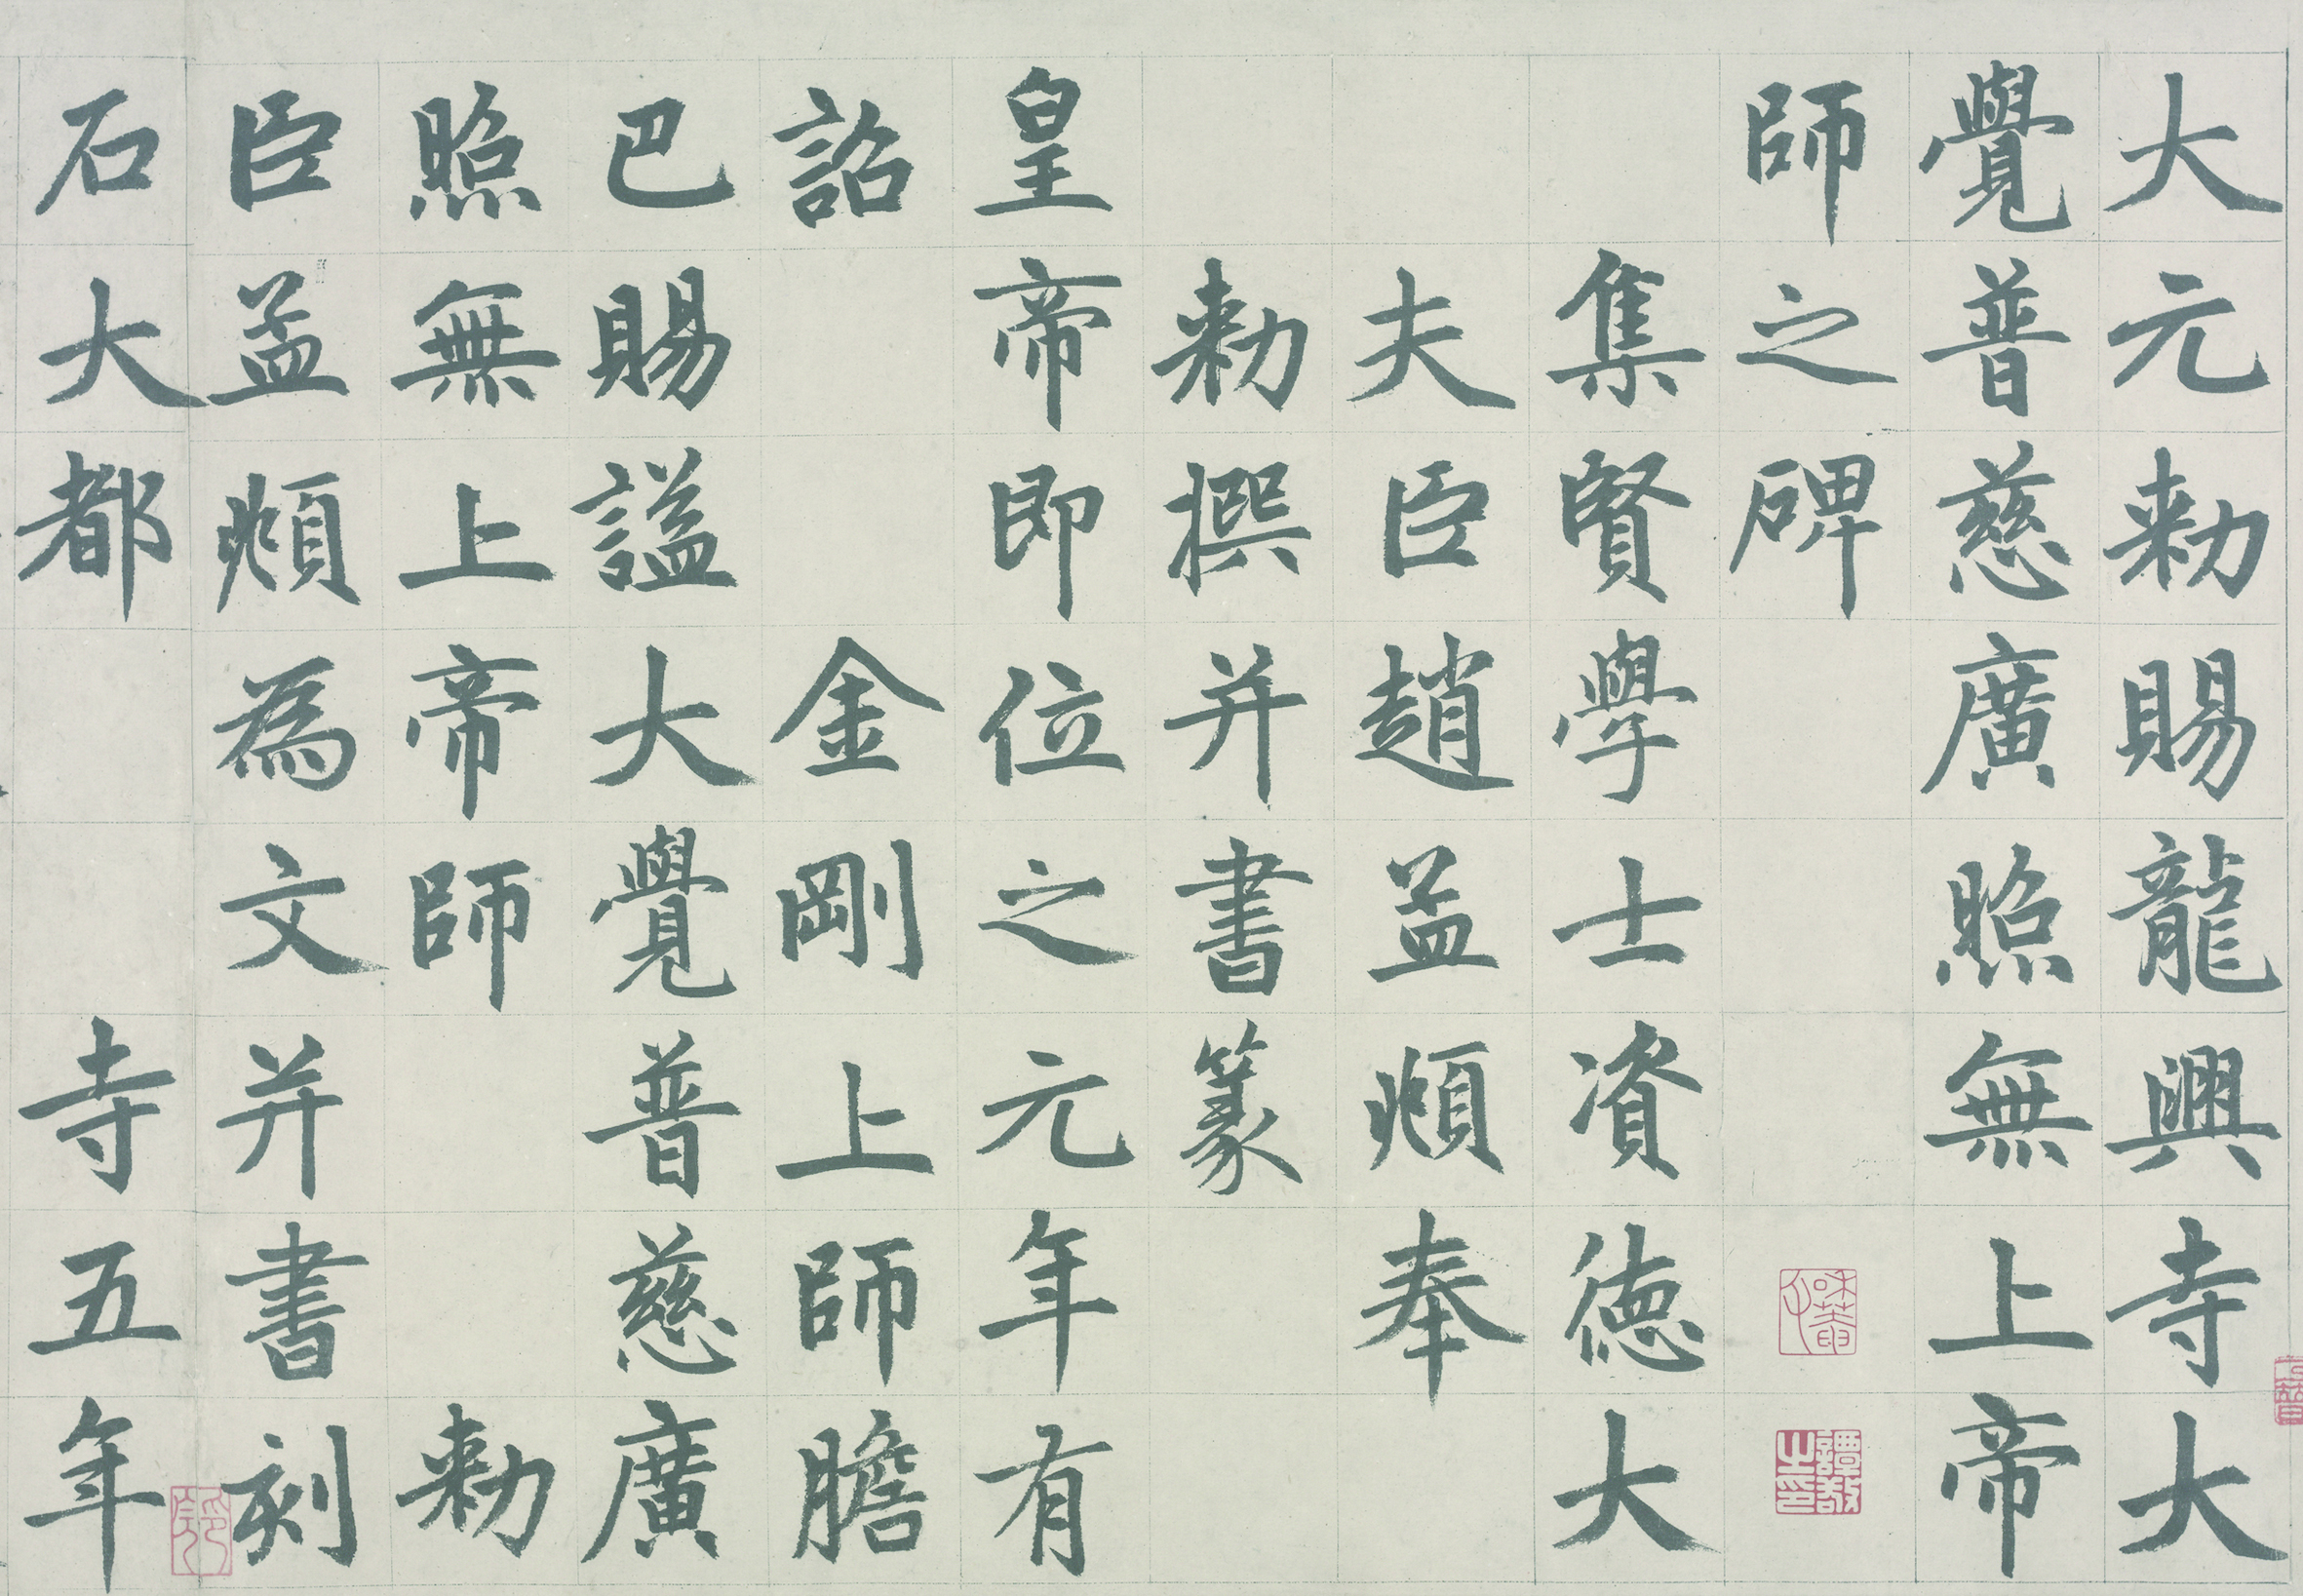 大元勑賜龍興寺大
覺普慈廣照無上帝
師之碑
集賢學士資德大
夫臣趙孟頫奉
勑撰并書篆
皇帝即位之元年有
詔金剛上師膽
巴賜謚大覺普慈廣
照無上帝師勑
臣孟頫為文并書刻
石大都寺五年